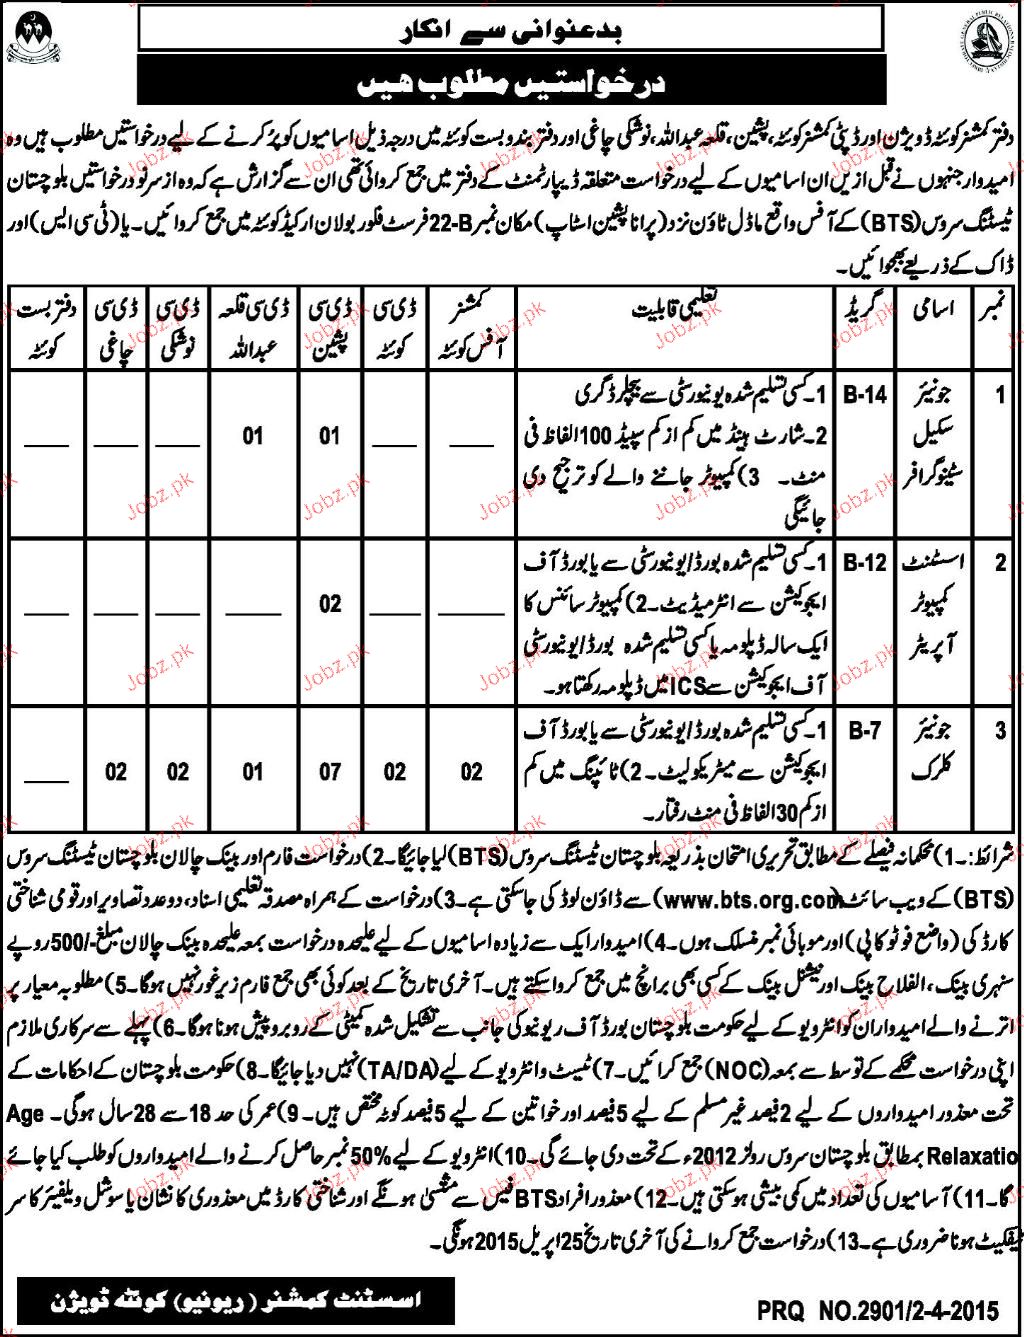 بدعنوانی سے انکار
درخواستیں مطلوب ھیں
دفتر کمشنر کوئٹہ ڈویژن اور ڈپٹی کمشنر کوئٹہ، پشین، قلعہ عبداللہ، نوشکی چاغی اور دفتر بندوبست کوئٹہ میں درجہ ذیل اسامیوں کو پُر کرنے کے لیے درخواستیں مطلوب ہیں وہ
امیدوار جنہوں نے قبل ازیں ان اسامیوں کے لیے درخواست متعلقہ ڈیپارٹمنٹ کے دفتر میں جمع کروائی تھی ان سے گزارش ہے کہ وہ از سر نو درخواستیں بلوچستان
ٹیسٹنگ سروس (BTS) کے آفس واقع ماڈل ٹاؤن نزد (پرانا پشین اسٹاپ) مکان نمبر 22-B فرسٹ فلور بولان ارکیڈ کوئٹہ میں جمع کروائیں۔ یا (ٹی سی ایس) اور
ڈاک کے ذریعے بھجوائیں۔
نمبر اسامی گریڈ تعلیمی قابلیت کمشنر آفس کوئٹہ ڈی سی کوئٹہ ڈی سی پشین ڈی سی قلعہ عبداللہ ڈی سی نوشکی ڈی سی چاغی دفتر بست کوئٹہ
1 جونیئر سکیل سٹینوگرافر B-14
1۔ کسی تسلیم شدہ یونیورسٹی سے بیچلر ڈگری
2۔ شارٹ ہینڈ میں کم از کم سپیڈ 100 الفاظ فی
منٹ۔ 3) کمپیوٹر جاننے والے کو ترجیح دی
جائیگی
___ ___ 01 01 ___ ___ ___
2 اسسٹنٹ کمپیوٹر آپریٹر B-12
1۔ کسی تسلیم شدہ بورڈ/یونیورسٹی سے یا بورڈ آف
ایجوکیشن سے انٹرمیڈیٹ۔ 2) کمپیوٹر سائنس کا
ایک سالہ ڈپلومہ یا کسی تسلیم شدہ بورڈ/یونیورسٹی
آف ایجوکیشن سے ICS میں ڈپلومہ رکھتا ہو۔
___ ___ 02 ___ ___ ___ ___
3 جونیئر کلرک B-7
1۔ کسی تسلیم شدہ بورڈ/یونیورسٹی سے یا بورڈ آف
ایجوکیشن سے میٹریکولیٹ۔ 2) ٹائپنگ میں کم
از کم 30 الفاظ فی منٹ رفتار۔
02 02 07 01 02 02 ___
شرائط:۔ 1) محکمانہ فیصلے کے مطابق تحریری امتحان بذریعہ بلوچستان ٹیسٹنگ سروس (BTS) لیا جائیگا۔ 2) درخواست فارم اور بینک چالان بلوچستان ٹیسٹنگ سروس
(BTS) کے ویب سائٹ (www.bts.org.com) سے ڈاؤن لوڈ کی جاسکتی ہے۔ 3) درخواست کے ہمراہ مصدقہ تعلیمی اسناد، دو عدد تصاویر اور قومی شناختی
کارڈ کی (واضع فوٹو کاپی) اور موبائی نمبر منسلک ہوں۔ 4) امیدوار ایک سے زیادہ اسامیوں کے لیے علیحدہ درخواست بمعہ علیحدہ بینک چالان مبلغ -/500 روپے
سنہری بینک، الفلاح بینک اور نیشنل بینک کے کسی بھی برانچ میں جمع کرواسکتے ہیں۔ آخری تاریخ کے بعد کوئی بھی جمع فارم زیر غور نہیں ہوگا۔ 5) مطلوبہ معیار پر
اترنے والے امیدواران کو انٹرویو کے لیے حکومت بلوچستان بورڈ آف ریونیو کی جانب سے تشکیل شدہ کمیٹی کے روبرو پیش ہونا ہوگا۔ 6) پہلے سے سرکاری ملازم
اپنی درخواست محکمے کے توسط سے بمعہ (NOC) جمع کرائیں۔ 7) ٹیسٹ و انٹرویو کے لیے (TA/DA) نہیں دیا جائیگا۔ 8) حکومت بلوچستان کے احکامات کے
تحت معذور امیدواروں کے لیے 2 فیصد غیر مسلم کے لیے 5 فیصد اور خواتین کے لیے 5 فیصد کوٹہ مختص ہیں۔ 9) عمر کی حد 18 سے 28 سال ہوگی۔ Age
Relaxatio بمطابق بلوچستان سروس رولز 2012ء کے تحت دی جائے گی۔ 10) انٹرویو کے لیے %50 نمبر حاصل کرنے والے امیدواروں کو طلب کیا جائے
گا۔ 11) آسامیوں کی تعداد میں کمی بیشی ہوسکتی ہیں۔ 12) معذور افراد BTS فیس سے مثتنیٰ ہونگے اور شناختی کارڈ میں معذوری کا نشان یا سوشل ویلفیئر کا سر
ٹیفکیٹ ہونا ضروری ہے۔ 13) درخواست جمع کروانے کی آخری تاریخ 25 اپریل 2015 ہونگی۔
اسسٹنٹ کمشنر (ریونیو) کوئٹہ ڈویژن
PRQ NO.2901/2-4-2015
Jobz.pk